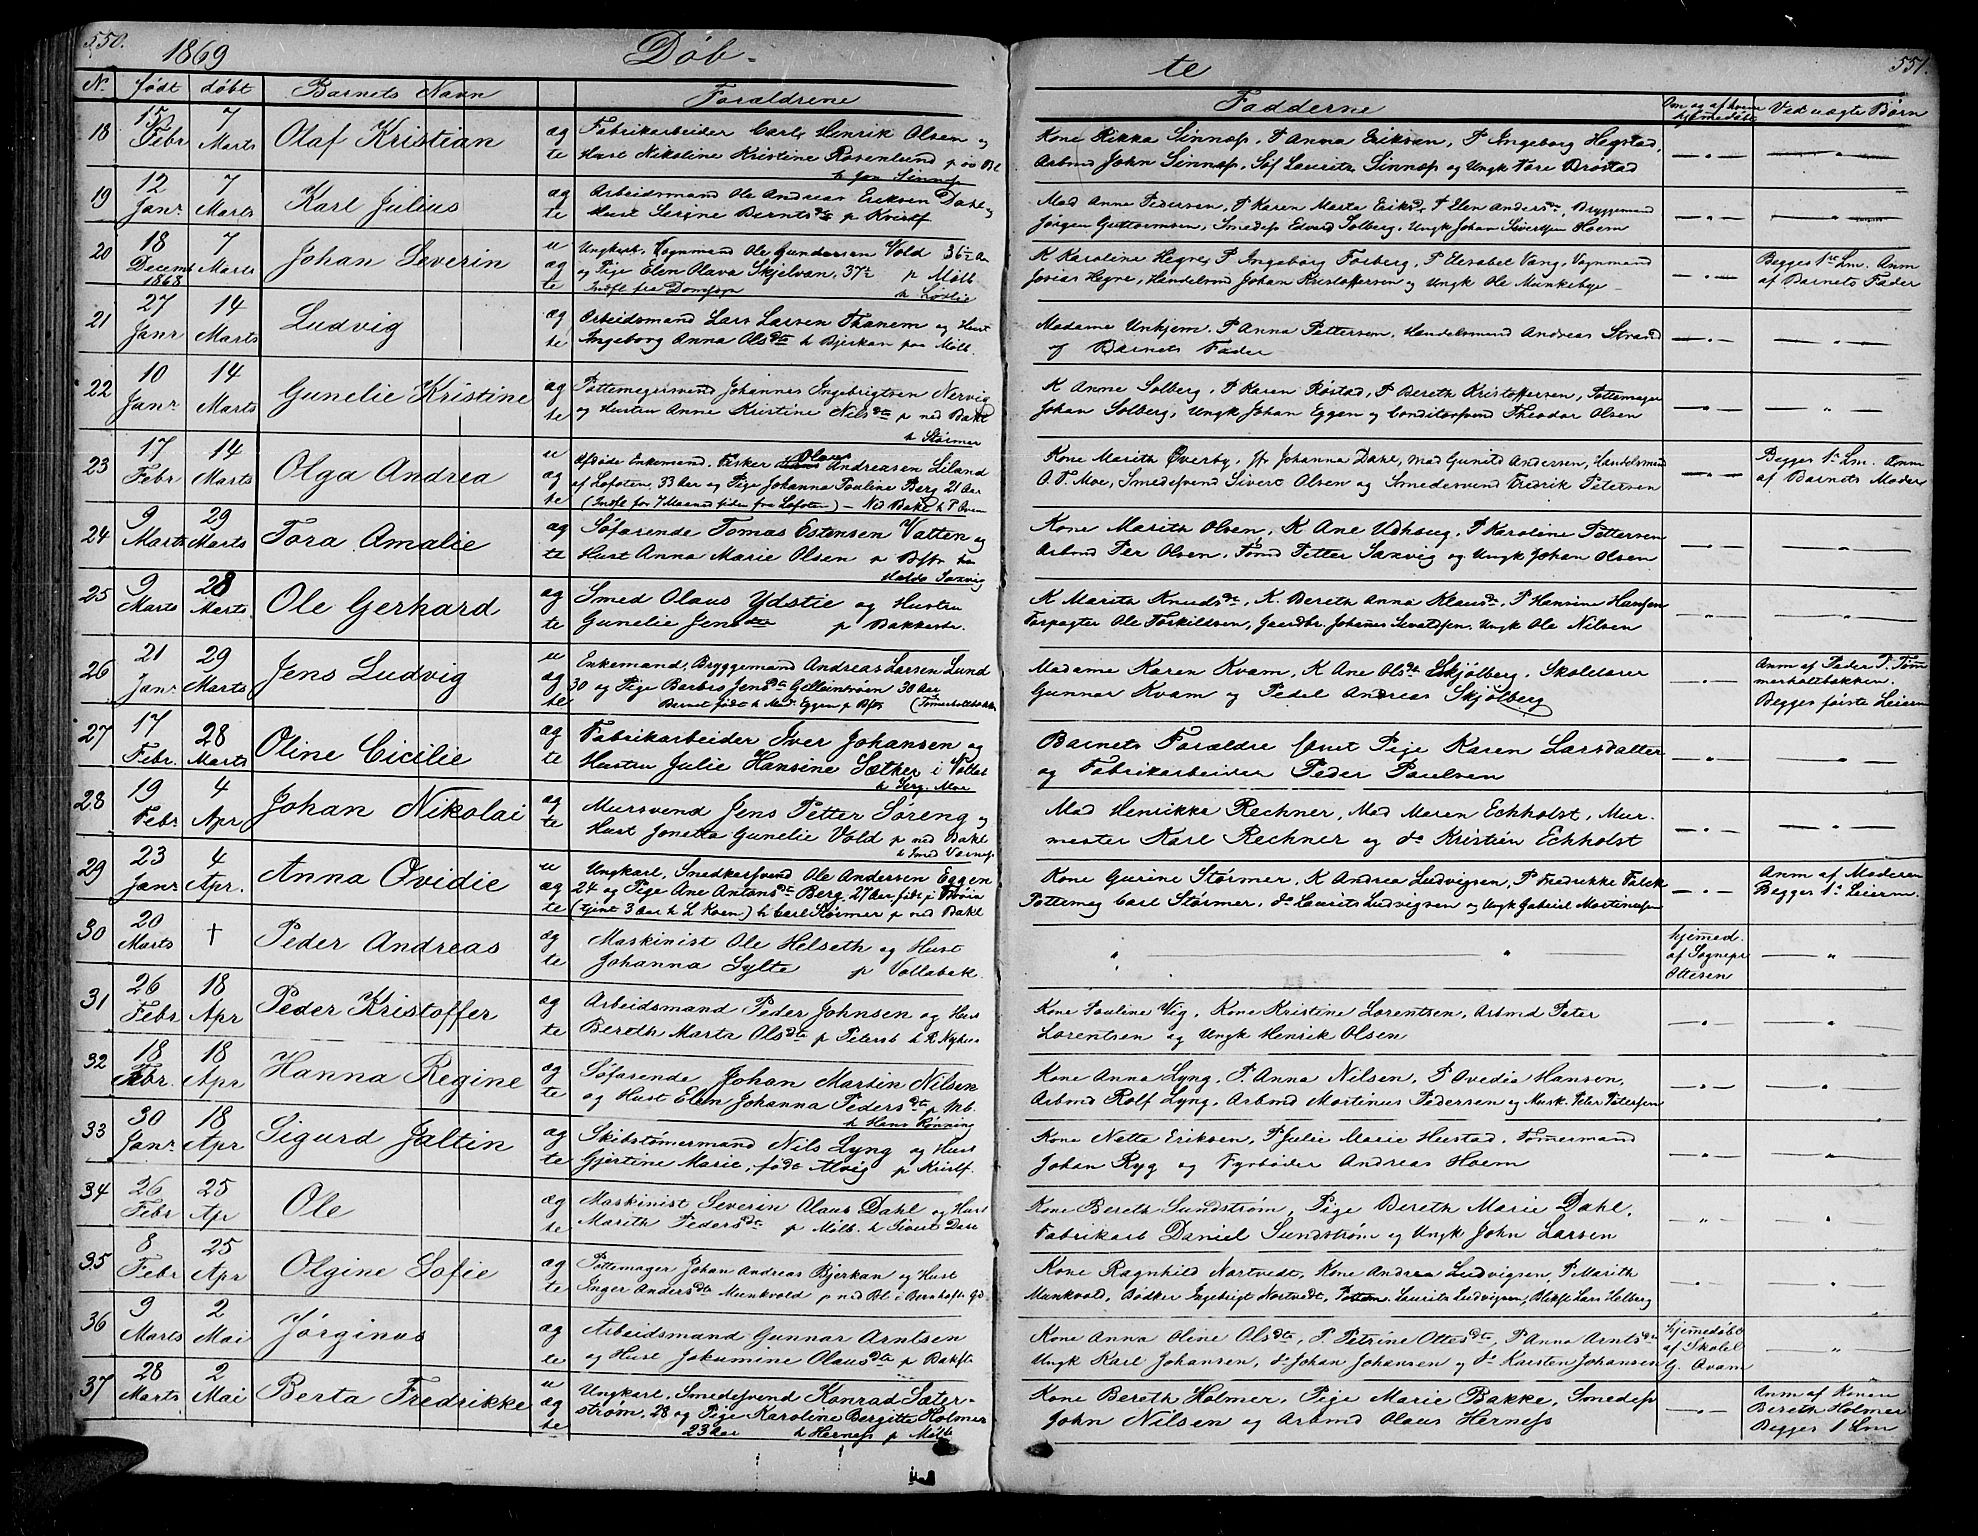 550. 1869 Döb- te 551.
N. født døbt Barnets Navn Forældrene Fadderne Om og af hvem hjemmedøbt Ved uægte Børn
18 15 Febr 7 Marts Olaf Kristian ægte Fabrikarbeider Carl Henrik Olsen og Kone Rikka Sinnøs, P Anna Eriksen, P Ingeborg Hegstad,
Hust Nikoline Kristine Rosenlund p øv Bl Arbmd John
19 12 Janr 7 Marts Karl Julius ægte Arbeidsmand Ole Andreas Eriksen Dahl og Mad Anne Pedersen, P Karen Marta Eriksd, P Elen Andersdr, Bryggemand
Hust Serene Berntsdtr p Kristf Jørgen Guttormsen, Smedes Edvard Solberg, Ungk Johan Sivertsen Hoem
20 18 Decemb 1868 7 Marts Johan Severin uægte Ungkarl, Vognmand Ole Gundersen Vold 36½ Aar K Karoline Hegre, P Ingebørg Forberg, P Elesabet Vang, Vognmand Begges 1ste Lm. Anm
og Pige Elen Olava Skjelvan, 37½ p Møllb Josias Hegre, Handelsmd Johan Kristoffersen og Ungk Ole Munkebye af Barnets Fader
Indfl fra Domsop
21 27 Janr 14 Marts Ludvig ægte Arbeidsmand Lars Larsen Thanem og Hust Madame Unkjem, P Anna Pettersen, Handelsmand Andreas Strand
Ingeborg Anna Olsdtr h Bjerkan paa Møllb. og Barnets Fader
22 10 Janr 14 Marts Gunelie Kristine ægte Pottemagersvend Johannes Ingebrigtsen Nervig K Anne Solberg, P Karen Røstad, P Bereth Kristoffersen, Pottemager
og Hustru Anne Kristine Nilsdtr p ned Bakl Johan Solberg, Ungk Johan Eggen og Conditorsvend Theodor Olsen
h Størmer
23 17 Febr 14 Marts Olga Andrea uægte Afdøde Enkemand, Fisker Olaus Andreasen Liland Kone Marith Øverby, Jfr Johanna Dahl, Mad Gunild Andersen, Handelsmd Begges 1ste Lm. Anm
af Lofoten, 33 Aar og Pige Johanna Pauline Berg 21 Aar O. T. Moe, Smedesvend Sivert Olsen og Smedesvend Fredrik Petersen af Barnets Moder
(Indfl for 7 Maaned siden fra Lofoten) – Ned Bakl h P Aven
24 9 Marts 29 Marts Tora Amalie ægte Søfarende Tomas Estensen Vatten og Kone Marith Olsen, K Ane Udhaug, P Karoline Pettersen
Hust Anna Marie Olsen p Bftr hos Arbmd Per Olsen, Tømd Petter Saxvig og Ungk Johan Olsen
Saxvig
25 9 Marts 28 Marts Ole Gerhard ægte Smed Olaus Ydstie og Hustru K Marith Knudsdtr, K. Bereth Anna Klausdr, P Hansine Hansen
Gunelie Jensdtr p Bakkestr. Forpagter Ole Torkildsen, Gaardbr. Johannes Sivaldsen, Ungk Ole Nilsen
26 21 Janr 29 Marts Jens Ludvig uægte Enkemand, Bryggemand Andreas Larsen Lund Madame Karen Kvam, K Ane Olsdtr Eskjølberg, Skolelærer Anm af Fader P. Tøm
30 og Pige Barbro Jensdtr 30 Aar Gunnar Kvam og Pedel Andreas Skjølberg merholtbakken.
Barnet født h Mad. Eggen p Bftr Begges første Leierm
27 17 Febr. 28 Marts Oline Cicilie ægte Fabrikarbeider Iver Johansen og Barnets Forældre samt Pige Karen Larsdatter
Hustru Julie Hansine Sætker i Vollab og Fabrikarbeider Peder Paulsen
h Serg. Moe
28 19 Febr 4 Apr Johan Nikolai ægte Mursvend Jens Petter Søreng og Mad Henrikke Rechner, Mad Maren Eckholst, Mur-
Hust Jonetta Gunelie Vold p ned Bakl mester Karl Rechner og do Kristien Eckholst
h Smed Værnes
29 23 Janr 4 Apr. Anna Ovidie uægte Ungkarl, Snedkersvend Ole Andersen Eggen Kone Gurine Størmer, K Andrea Ludvigsen, P Fredrikke Falck Anm af Moderen
24 og Pige Ane Antonsdtr Berg, 27 Aar, født p Ytterøia Pottemag Carl Størmer, do Laurits Ludvigsen og Ungk Gabriel Martinussen Begges 1ste Leierm.
(tjent 3 Aar h L Koem) h Carl Størmer p ned Bakl
30 20 Marts † Peder Andreas ægte Maskinist Ole Helseth og Hust hjemmed.
Johanna Sylte p Vollabak. af Sognepr
Ottesen
31 26 Febr 18 Apr Peder Kristoffer ægte Arbeidsmand Peder Johnsen og Hust Kone Pauline Vig, Kone Kristine Lorentsen, Arbmd Peter
Bereth Marta Olsdtr p Petersb h R. Nyhus Lorentsen og Ungk Henrik Olsen
32 18 Febr. 18 Apr Hanna Regine ægte Søfarende Johan Martin Nilsen Kone Anna Lyng, P. Anna Nilsen, P Ovedia Hansen,
og Hust Elen Johanna Pedersdtr p Mb. Arbmd Rolf Lyng, Arbmd Martinus Pedersen og Mask. Peter Pettersen
h Hans Rønning
33 30 Janr 18 Apr Sigurd Jaltin ægte Skibstømmermand Nils Lyng og Hust Kone Netta Eriksen, P Julie Marie Hustad, Tømmermand
Gjertine Marie, født Alvig p Kristf. Johan Ryg og Fyrbøder Andreas Hoem
34 26 Febr 25 Apr Ole ægte Maskinist Severin Olaus Dahl og Hust Kone Bereth Sundstrøm, Pige Bereth Marie Dahl,
Marith Pedersdtr p Møllb. h Sivert Dahl Fabrikarb Daniel Sundstrøm og Ungk John Larsen
35 8 Febr 25 Apr Olgine Sofie ægte Pottemager Johan Andreas Bjerkan og Hust Kone Ragnhild Nortvedt, Kone Andrea Ludvigsen, P Marith
Inger Andersdtr Munkvold p ned Bl i Bernhofts Gd Munkvold, Bødker Ingebrigt Nortvedt, Pottem. Laurits Ludvigsen, Bliksl Lars Helberg
36 9 Marts 2 Mai Jørginus ægte Arbeidsmand Gunnar Arntsen Kone Anna Oline Olsdtr, P. Petrine Ottesdtr, P Anna Arntsdr hjemmedøbt
og Hust Jokumine Olausdtr p Bakft Ungk Karl Johansen, do Johan Johansen og do Karsten Johansen af Skolel
G. Qvam
37 28 Marts 2 Mai Berta Fredrikke uægte Ungkarl, Smedesvend Konrad Sater- Kone Bereth Holmer, Pige Marie Bakke, Smedes Anm af Konen
strøm, 28 og Pige Karoline Bergitte Holmer John Nilsen og Arbmd Olaus Herness Bereth Holmer
23 Aar h Herness p Møllb Begges 1 Lm